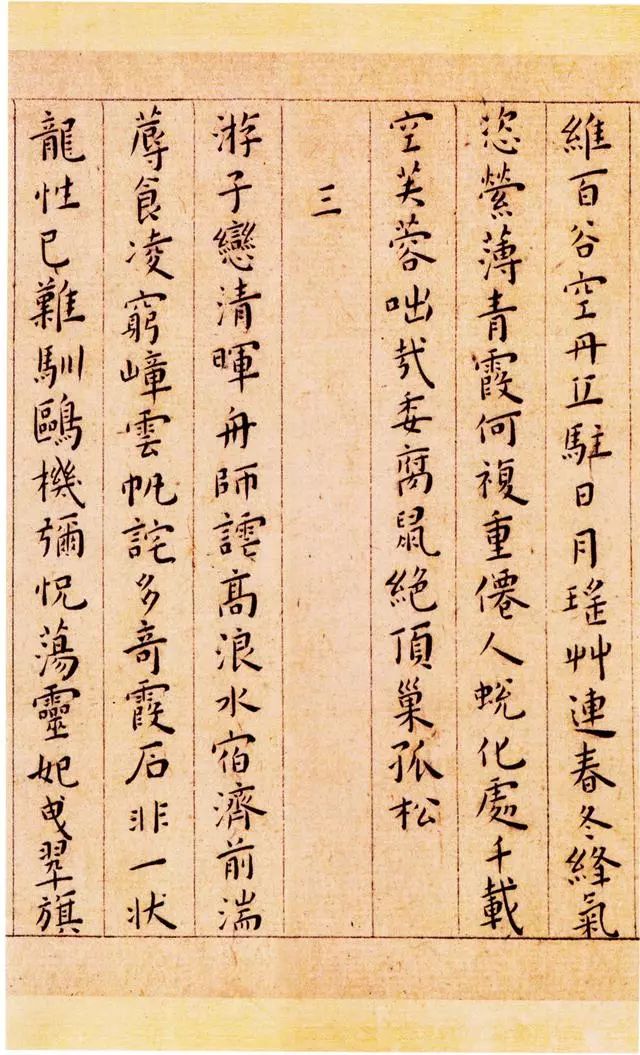 維百谷空丹丘駐日月瑤艸連春冬絳氣
恣縈薄青霞何複重僊人蛻化處千載
空芙蓉咄哉委腐鼠絶頂巢孤松
三
游子戀清暉舟師謔高浪水宿濟前湍
蓐食凌窮嶂雲帆詫多奇霞石非一状
龍性已難馴鷗機彌怳蕩靈妃曳翠旗